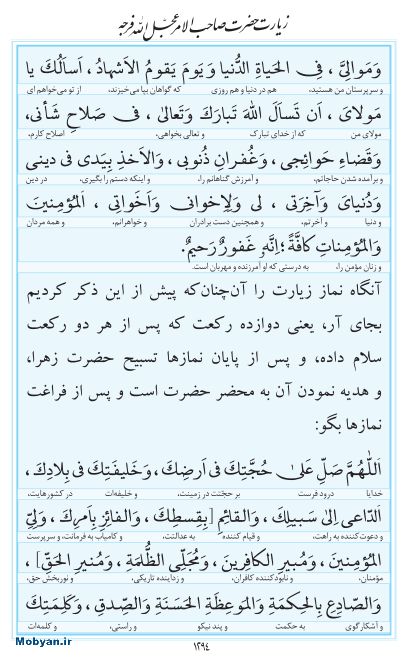 زیارت حضرت صاحب الامر عجل الله فرجه
وَمَوالِیَّ ، فِی الْحَیاةِ الدُّنیا وَیَومَ یَقومُ الْأَشهادُ ، أَسأَلُكَ یا
و سرپرستان من هستید، هم در دنیا و هم روزی که گواهان بپا می‌خیزند، از تو می‌خواهم ای
مَولایَ ، أَن تَسأَلَ اللهَ تَبارَكَ وَتَعالیٰ ، فی صَلاحِ شَأنی،
مولای من که از خدای تبارک و تعالی بخواهی، اصلاح کارم،
وَقَضاءِ حَوائِجی ، وَغُفرانِ ذُنوبی ، وَالْأَخذِ بِیَدی فی دینی
و برآمده شدن حاجاتم، و آمرزش گناهانم را، و اینکه دستم را بگیری، در دین
وَدُنیایَ وَآخِرَتی ، لی وَلِإِخوانی وَأَخَواتِی ، الْمُؤمِنینَ
و دنیا و آخرتم، و همچنین دست برادران و خواهرانم، و همه مردان
وَالْمُؤمِناتِ كافَّةً ؛ إِنَّهُ غَفورٌ رَحیمٌ.
و زنان مؤمن را، به درستی که او آمرزنده و مهربان است.
آنگاه نماز زیارت را آن‌چنان‌که پیش از این ذکر کردیم
بجای آر، یعنی دوازده رکعت که پس از هر دو رکعت
سلام داده، و پس از پایان نمازها تسبیح حضرت زهرا،
و هدیه نمودن آن به محضر حضرت است و پس از فراغت
نمازها بگو:
اَللّٰهُمَّ صَلِّ عَلیٰ حُجَّتِكَ فی أَرضِكَ ، وَخَلیفَتِكَ فی بِلادِكَ ،
خدایا درود فرست بر حجّتت در زمینت، و خلیفه‌ات در کشورهایت،
اَلدّاعی إِلیٰ سَبیلِكَ ، وَالْقائِمِ [بِقِسطِكَ ، وَالْفائِزِ بِأَمرِكَ ، وَلِیِّ
و دعوت‌کننده به راهت، و قیام کننده به عدالتت، و کامیاب به فرمانت، و سرپرست
الْمُؤمِنینَ ، وَمُبیرِ الْكافِرینَ ، وَمُجَلِّی الظُّلمَةِ ، وَمُنیرِ الْحَقِّ] ،
مؤمنان، و نابودکننده کافران، و زداینده تاریکی، و نوربخش حق،
وَالصّادِعِ بِالْحِكمَةِ وَالْمَوعِظَةِ الْحَسَنَةِ وَالصِّدقِ ، وَكَلِمَتِكَ
و آشکارگوی به حکمت و پند نیکو و راستی، و کلمه‌ات
۱۲۹۴
Mobyan.ir